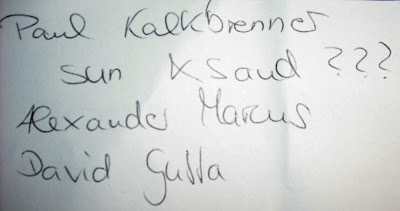 Paul Kalkbrenner
sun & Sand ???
Alexander Marcus
David Gutta